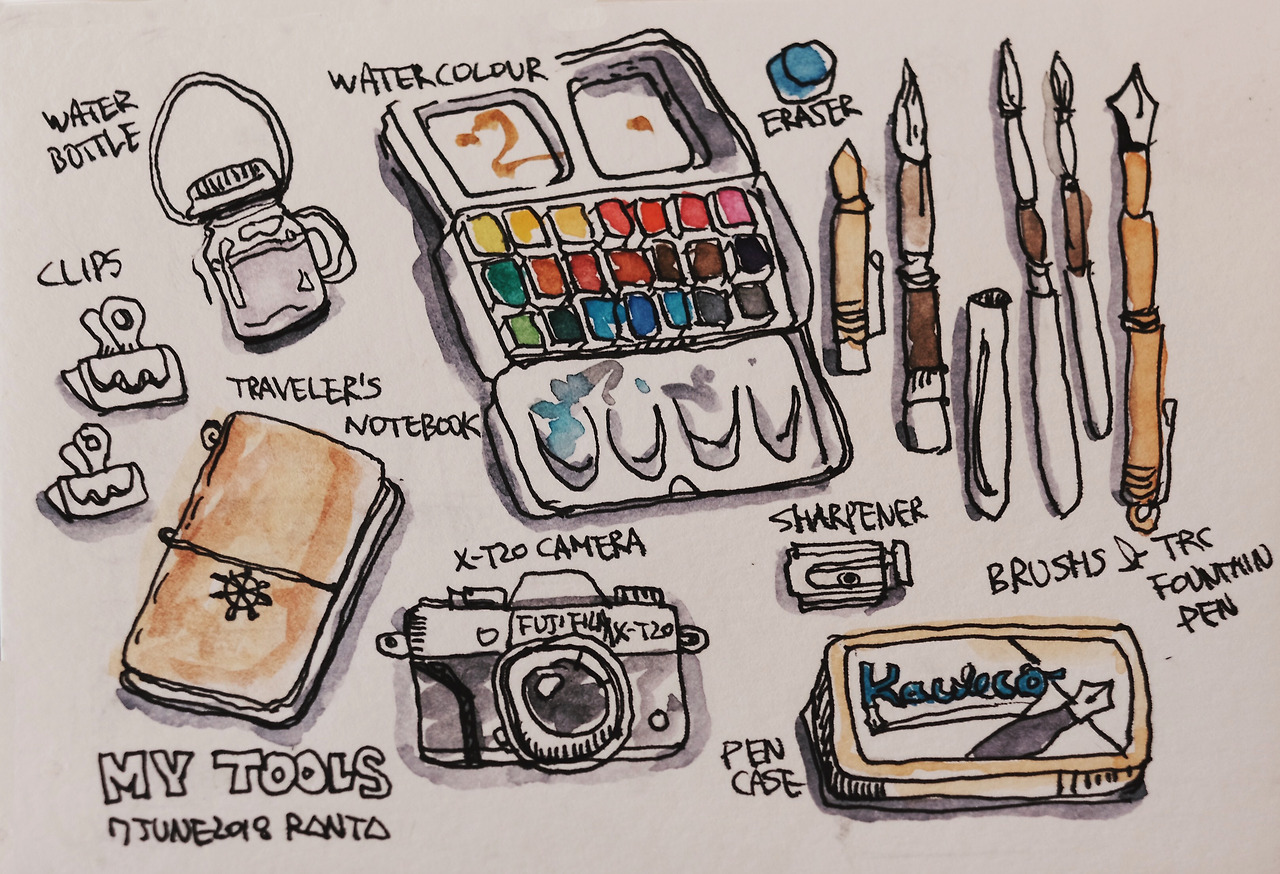 WATERCOLOUR
WATER
BOTTLE
ERASER
CLIPS
TRAVELER'S
NOTEBOOK
X-T20 CAMERA
FUJIFILM X-T20
SHARPENER
BRUSHS & TRC
FOUNTAIN
PEN
Kaweco
PEN
CASE
MY TOOLS
7 JUNE 2018 RANTA